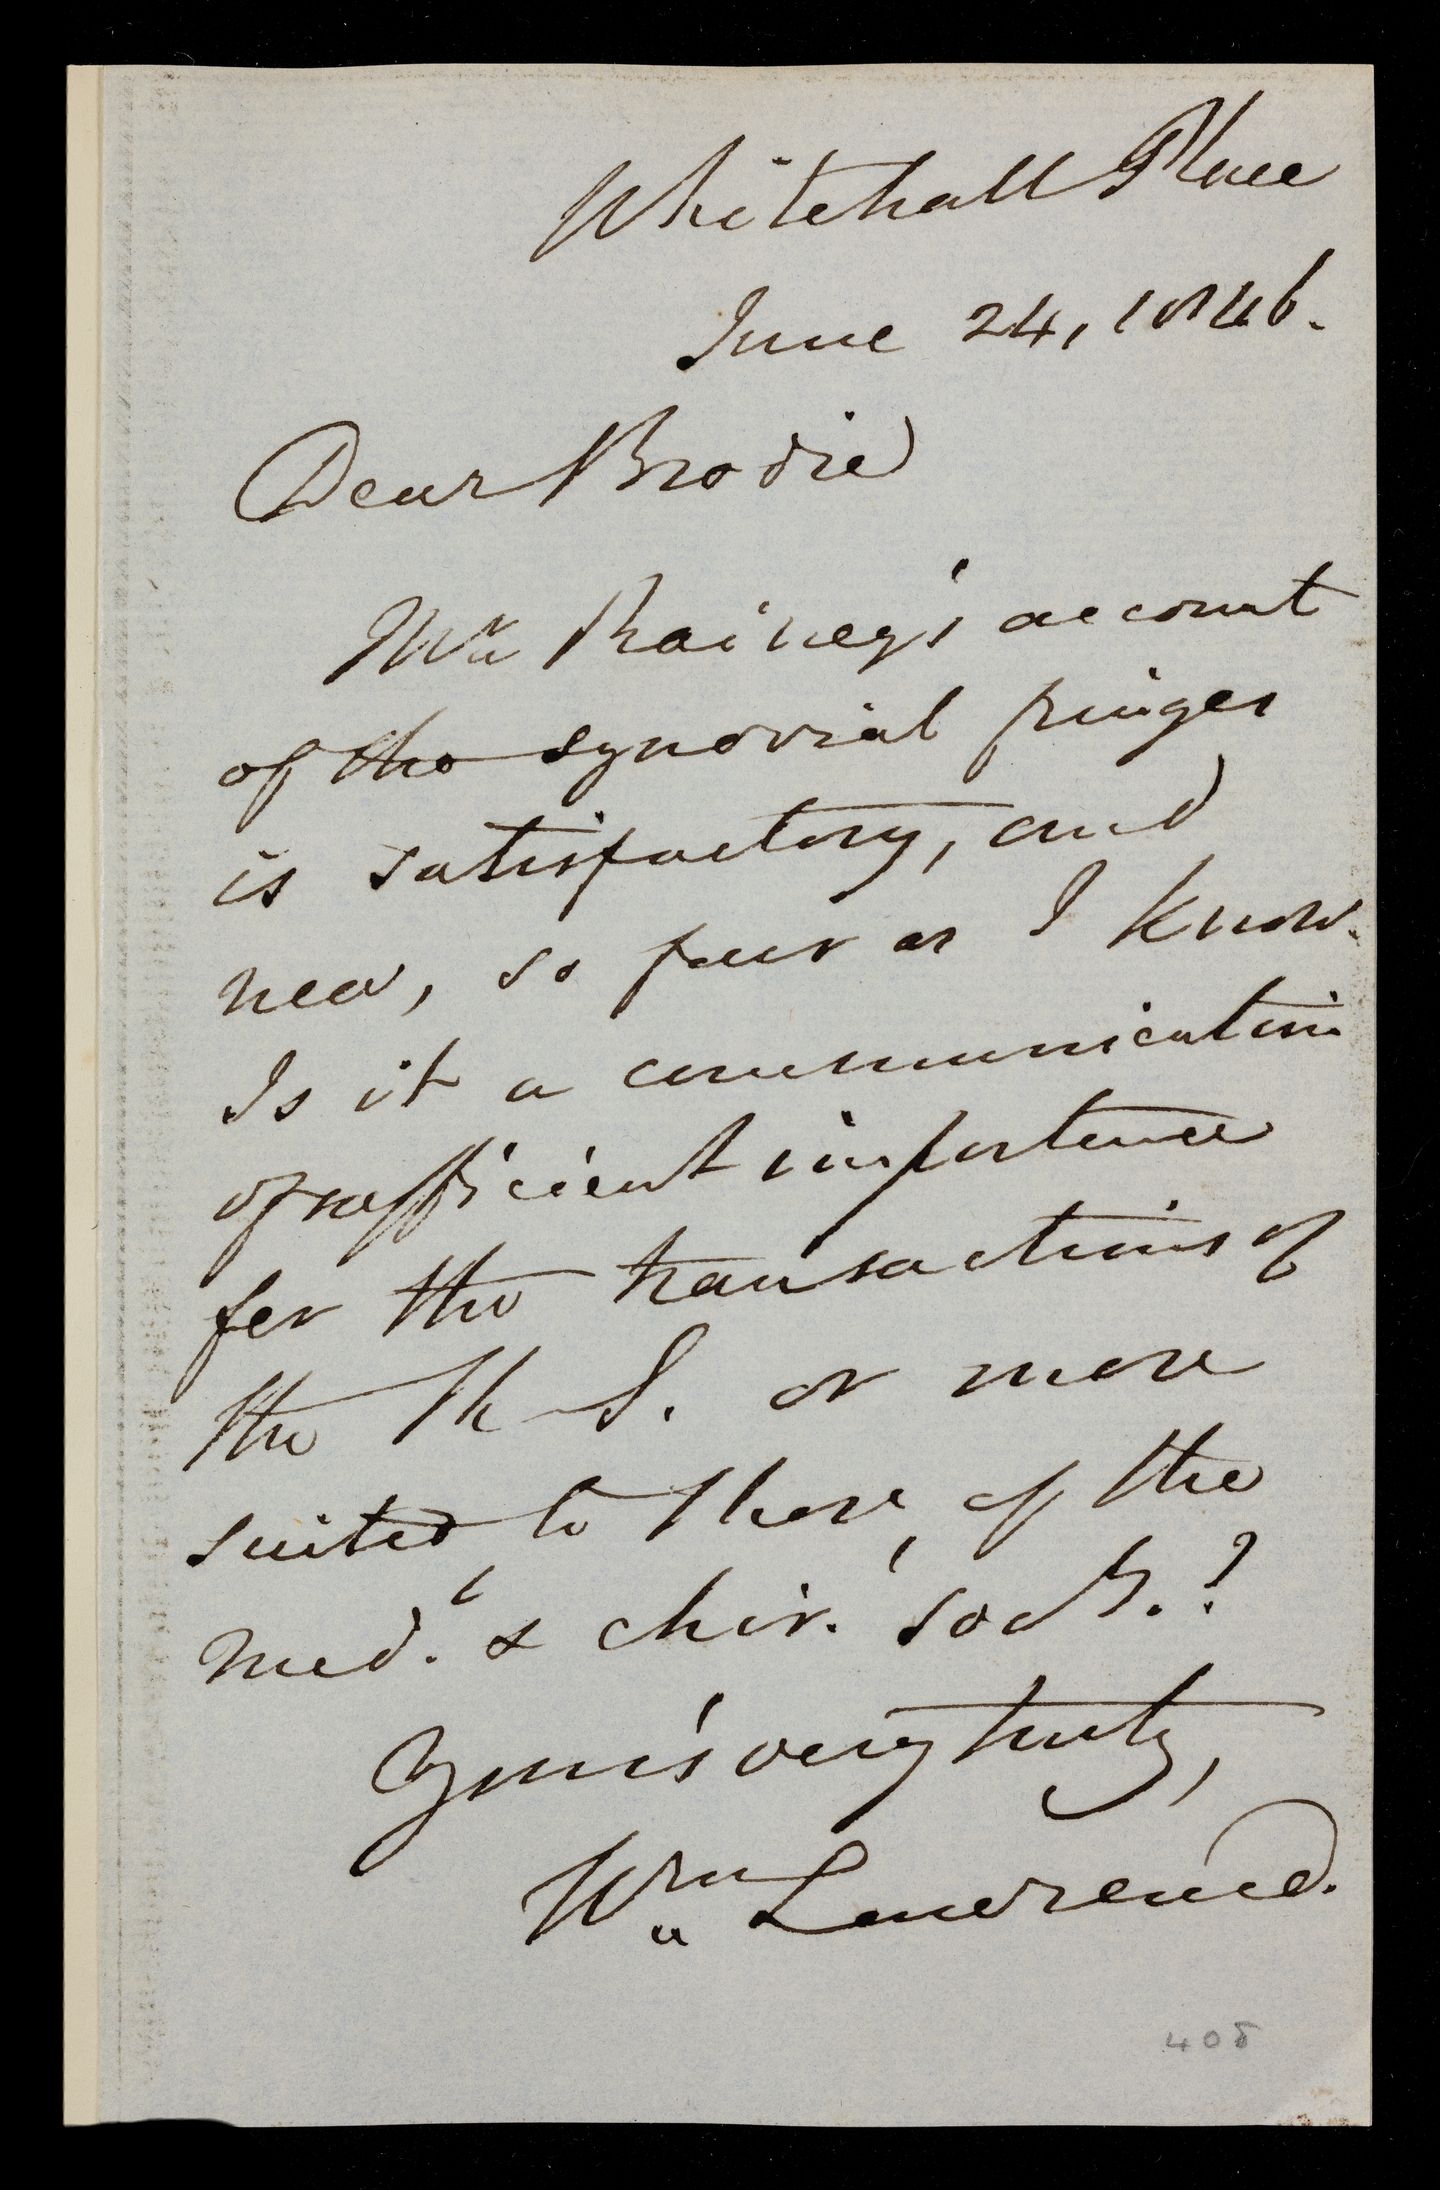 Whitehall Place
June 24, 1846.
Dear Brodie
Mr Rainey's account
of the synovial fringes
is satisfactory, and
new, so far as I know.
Is it a communication
of sufficient importance
for the transactions of
the R.S. or more
suited, to those, of the
med. & chir. Socy.?
Your's very truly,
Wm Lawrence.
408